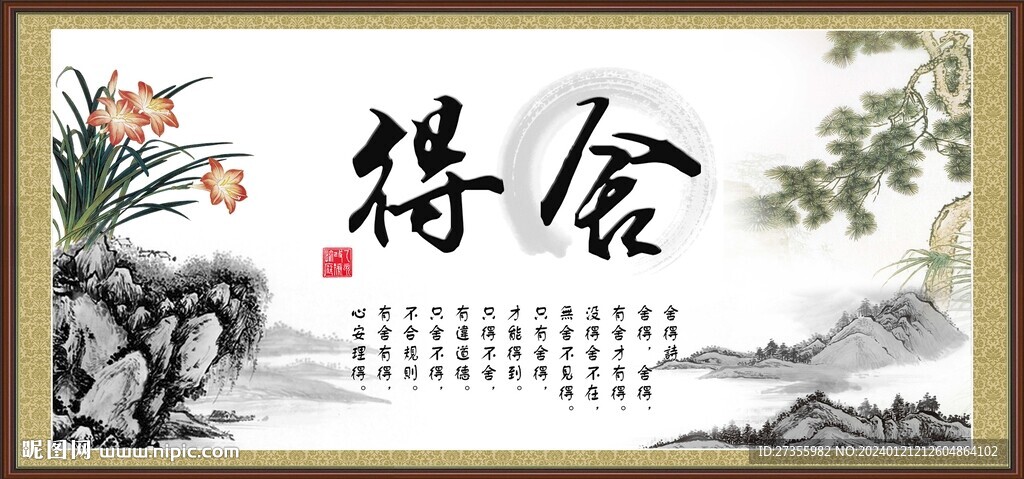 舍得
舍得詩
舍得，舍得，
有舍才有得。
没得舍不在，
無舍不见得。
只有舍得，
才能得到。
只得不舍，
有違道德。
只舍不得，
不合规则。
有舍有得，
心安理得。
昵图网 www.nipic.com
ID:27355982 NO:20240121212604864102